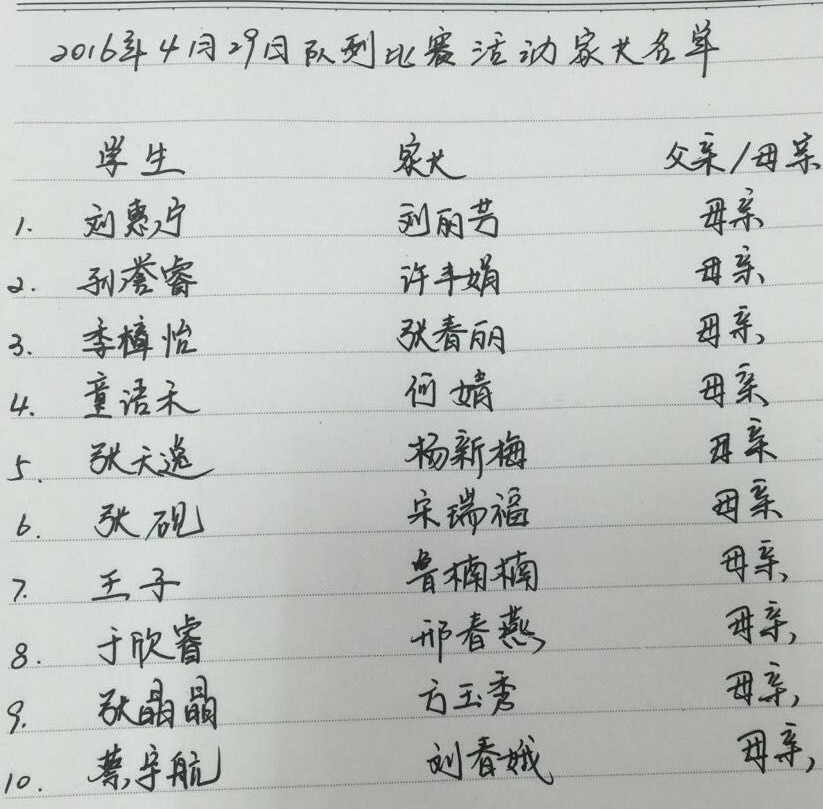 2016年4月29日队列比赛活动家长名单
学生 家长 父亲/母亲
1. 刘惠宁 刘丽芳 母亲
2. 孙誉睿 许丰娟 母亲
3. 季樟怡 张春丽 母亲
4. 童语禾 何婧 母亲
5. 张天逸 杨新梅 母亲
6. 张砚 宋瑞福 母亲
7. 王子 鲁楠楠 母亲
8. 于欣睿 邢春燕 母亲
9. 张晶晶 方玉秀 母亲
10. 蔡宇航 刘春娥 母亲